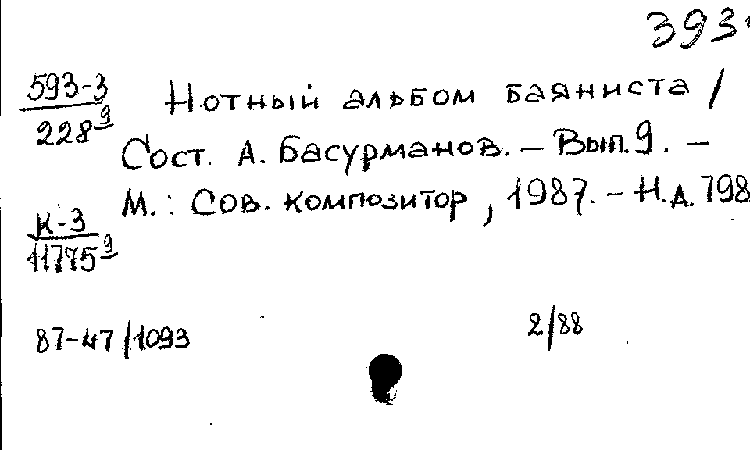 393
593-3
228 9
Нотный альбом баяниста /
Сост. А. Басурманов. – Вып. 9. –
М.: Сов. композитор, 1987. – Н.д. 798
К-3
11775 9
87-47/1093
2/88